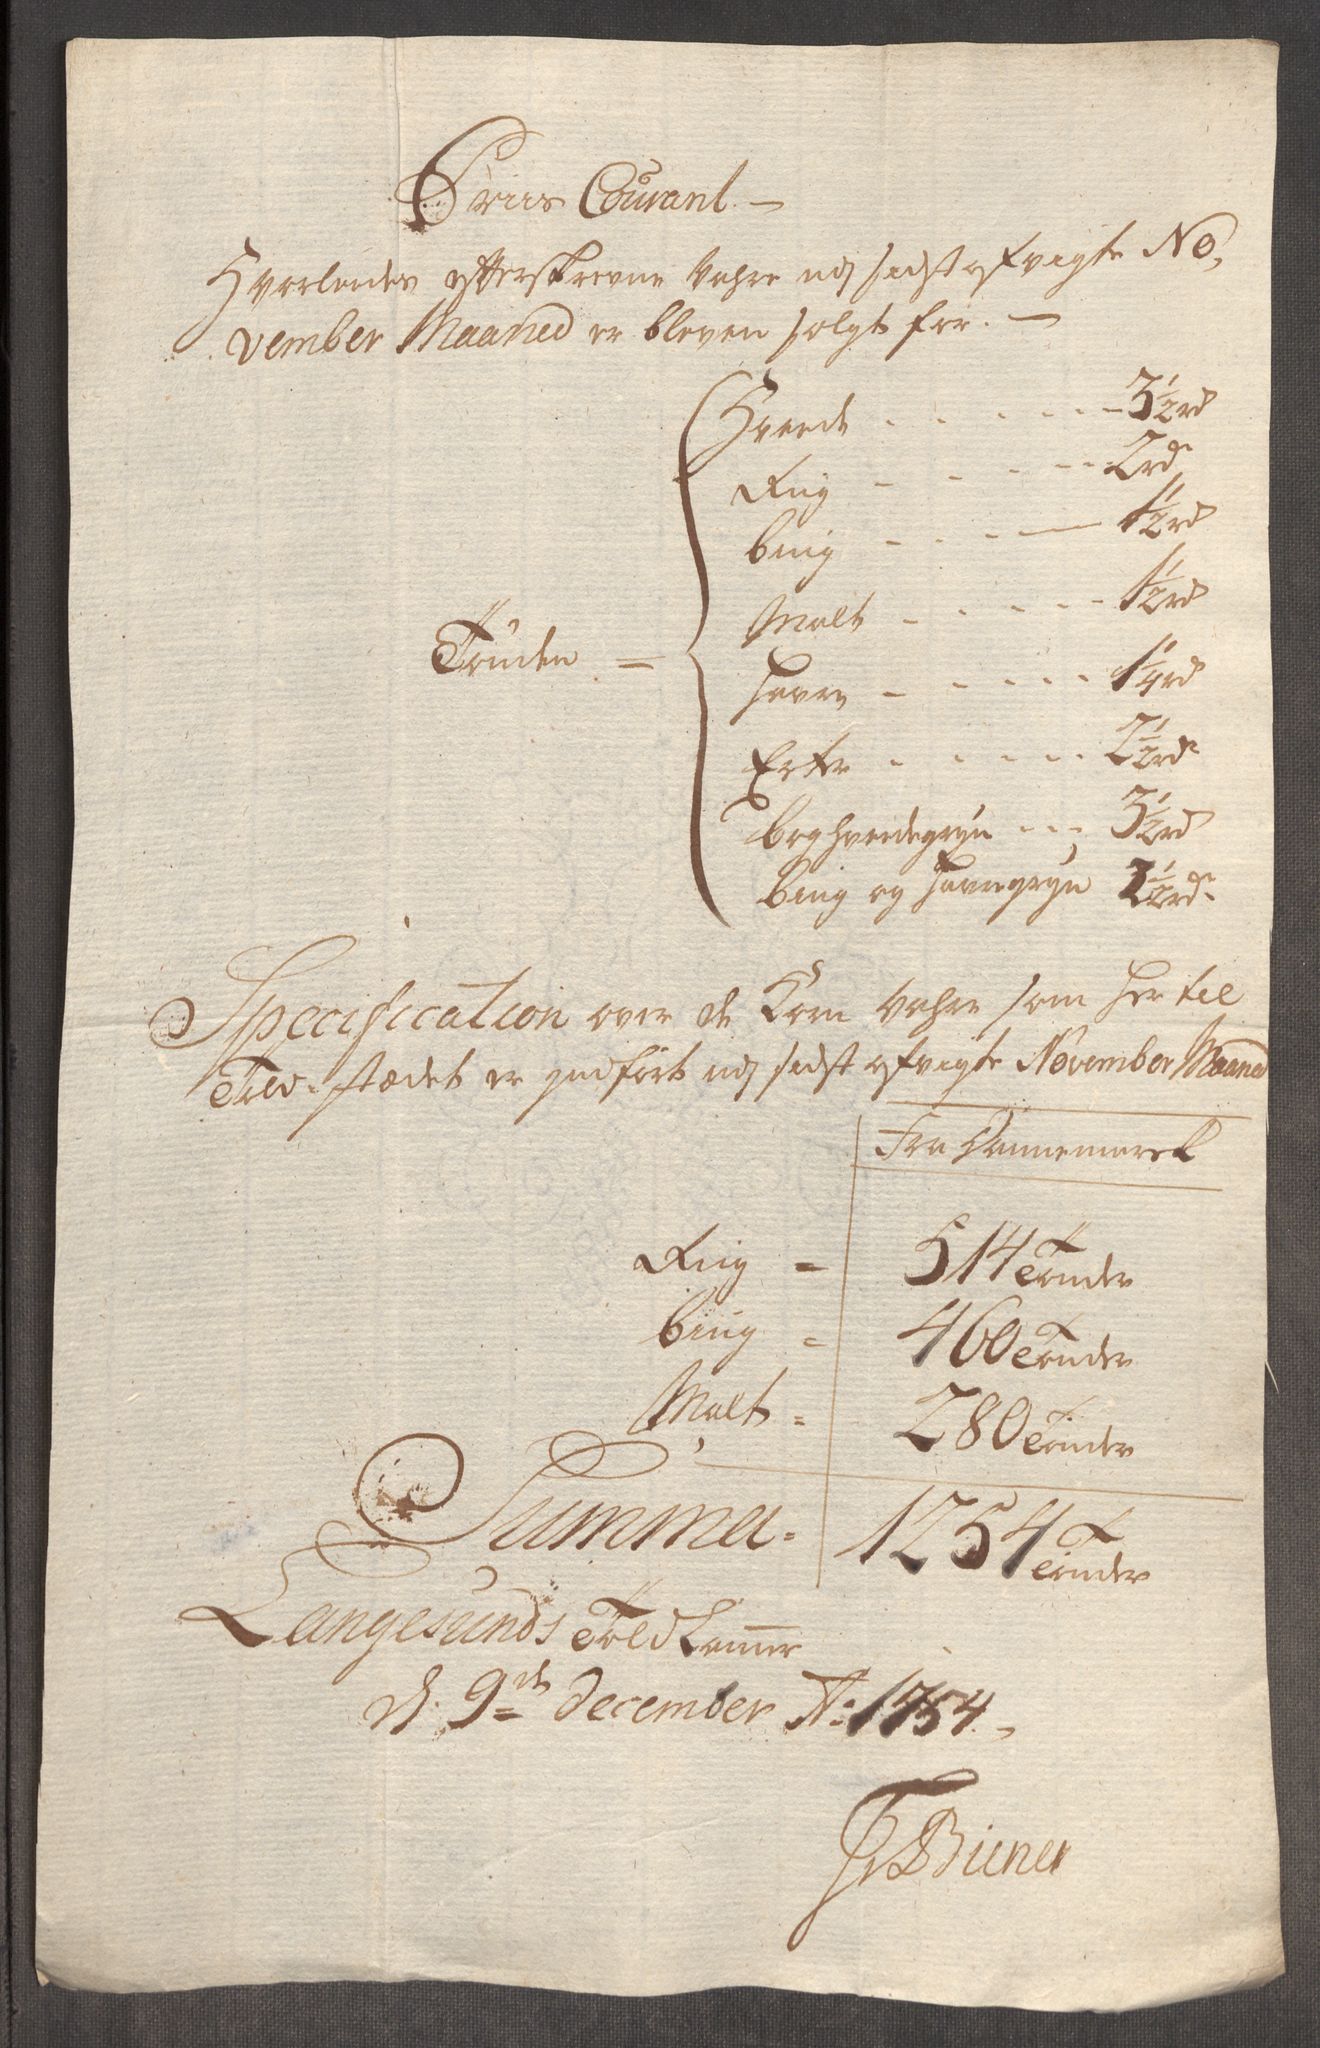 Priis Courant. —
Hvorledes efterskrevne Vahre udj sidst afvigte No,
vember Maaned er bleven solgt for. —
Hvede - - - - - - 3½rd
Rug - - - - - 2rd
bÿg - - - — 1½rd
Malt - - - - - 1½rd
Tönden =
havre - - - - - 1¼rd
Erter - - - - - 2½rd
boghvedegrÿn - - - 3½rd
bÿg og havregrÿn 3½rd
Specification over de Korn Vahre som her til
Told-stædet er indfört udj sidst afvigte November Maaned
Fra Dannemarck
Rug = 514 Tönder
bÿg = 460 Tönder
Malt = 280 Tönder
Summa = 1254 Tönder
Langesunds Toldkamer
d. 9de december Ao 1754.
Biener